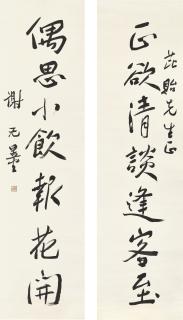 正欲清談逢客至
茈貽先生正
偶思小飲報花開
謝无量